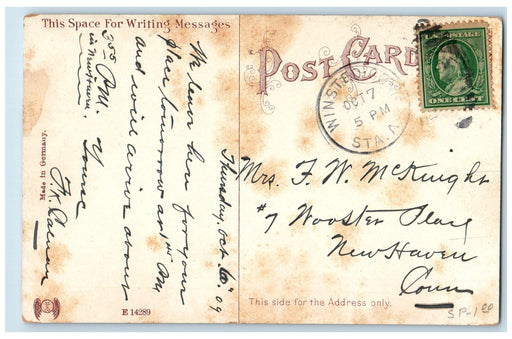 This Space For Writing Messages
POST CARD
U.S. POSTAGE
ONE CENT
WINSTED
OCT 7
5 PM
STA. A
Thursday, Oct. 6" 09
We leave here for your
place tomorrow and
and will arrive about
3 55 P.M.
in New Haven.
Yours
Mrs. F. W. McKnight
#7 Wooster Place
New Haven
Conn
This side for the Address only.
SP-1 00
Made in Germany.
E 14289